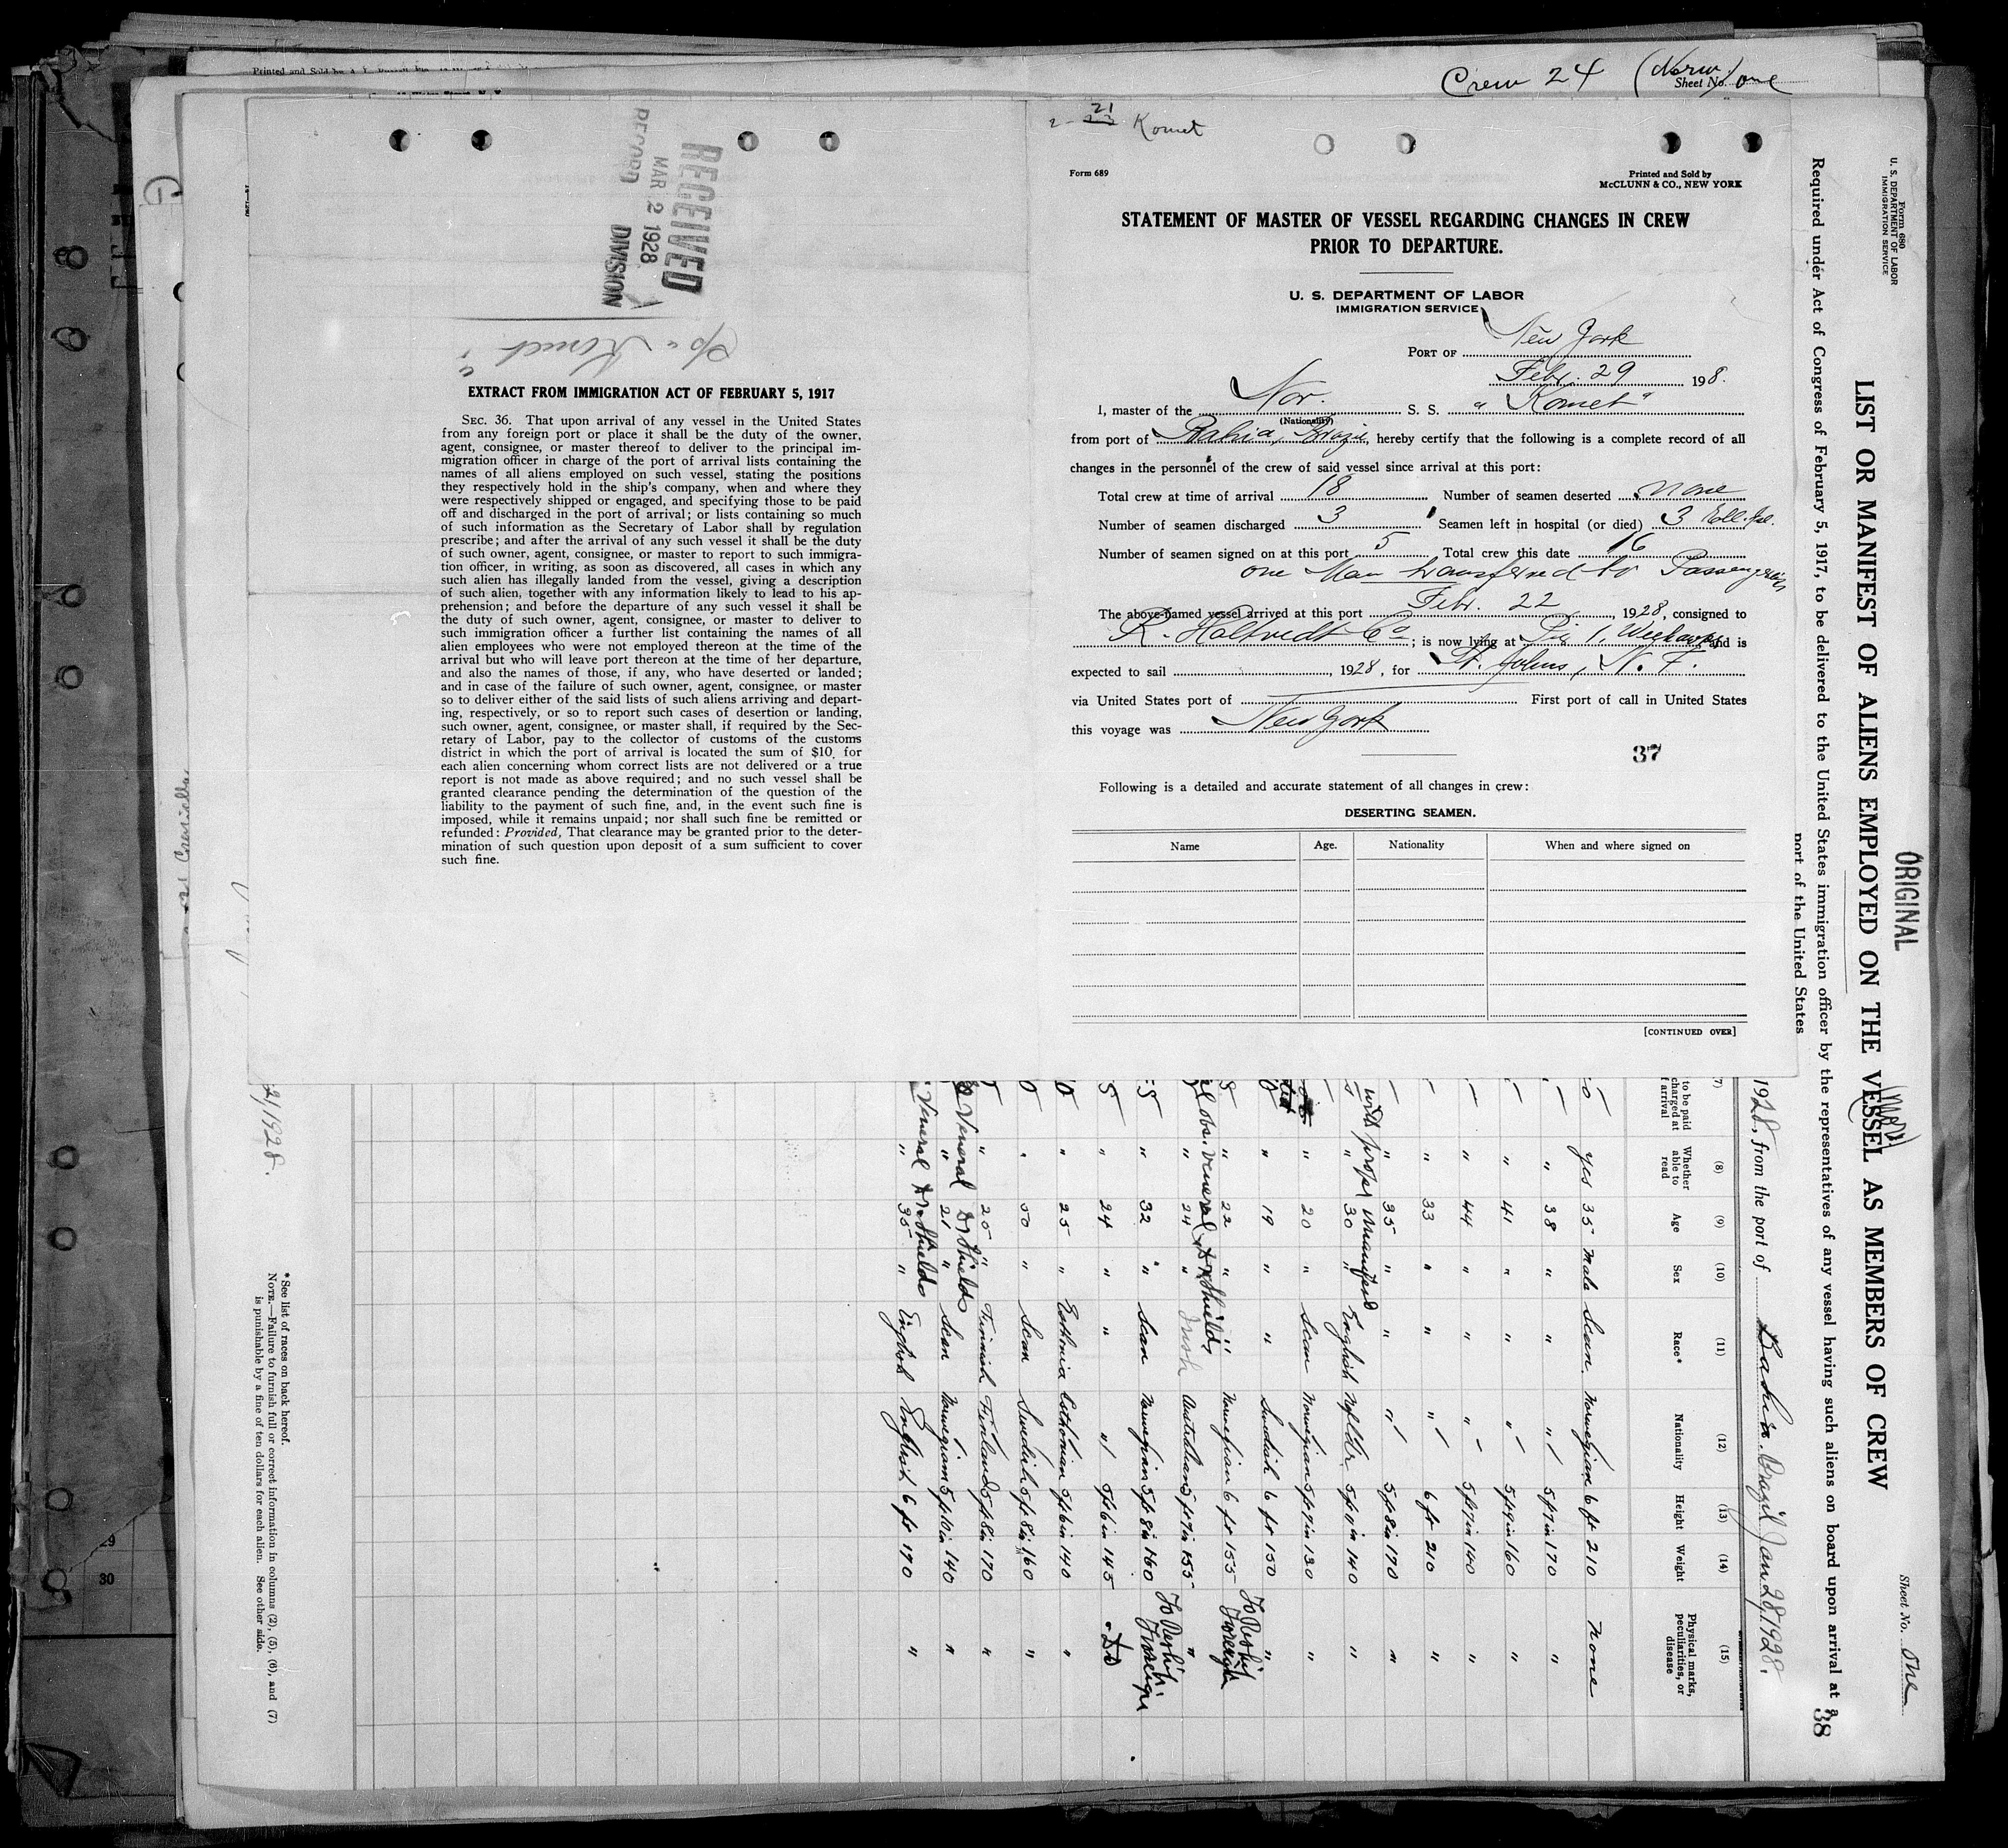 Crew 24 (Norw) Sheet No. one
2-21 Komet
RECEIVED
MAR 2 1928
RECORD DIVISION
S/S "Komet"
EXTRACT FROM IMMIGRATION ACT OF FEBRUARY 5, 1917
SEC. 36. That upon arrival of any vessel in the United States
from any foreign port or place it shall be the duty of the owner,
agent, consignee, or master thereof to deliver to the principal im-
migration officer in charge of the port of arrival lists containing the
names of all aliens employed on such vessel, stating the positions
they respectively hold in the ship's company, when and where they
were respectively shipped or engaged, and specifying those to be paid
off and discharged in the port of arrival; or lists containing so much
of such information as the Secretary of Labor shall by regulation
prescribe; and after the arrival of any such vessel it shall be the duty
of such owner, agent, consignee, or master to report to such immigra-
tion officer, in writing, as soon as discovered, all cases in which any
such alien has illegally landed from the vessel, giving a description
of such alien, together with any information likely to lead to his ap-
prehension; and before the departure of any such vessel it shall be
the duty of such owner, agent, consignee, or master to deliver to
such immigration officer a further list containing the names of all
alien employees who were not employed thereon at the time of the
arrival but who will leave port thereon at the time of her departure,
and also the names of those, if any, who have deserted or landed;
and in case of the failure of such owner, agent, consignee, or master
so to deliver either of the said lists of such aliens arriving and depart-
ing, respectively, or so to report such cases of desertion or landing,
such owner, agent, consignee, or master shall, if required by the Sec-
retary of Labor, pay to the collector of customs of the customs
district in which the port of arrival is located the sum of $10 for
each alien concerning whom correct lists are not delivered or a true
report is not made as above required; and no such vessel shall be
granted clearance pending the determination of the question of the
liability to the payment of such fine, and, in the event such fine is
imposed, while it remains unpaid; nor shall such fine be remitted or
refunded: Provided, That clearance may be granted prior to the deter-
mination of such question upon deposit of a sum sufficient to cover
such fine.
Form 689
Printed and Sold by
McCLUNN & CO., NEW YORK
STATEMENT OF MASTER OF VESSEL REGARDING CHANGES IN CREW
PRIOR TO DEPARTURE.
U. S. DEPARTMENT OF LABOR
IMMIGRATION SERVICE
PORT OF New York
Febr. 29 198.
I, master of the Nor. (Nationality) S. S. "Komet"
from port of Bahia, Brazil, hereby certify that the following is a complete record of all
changes in the personnel of the crew of said vessel since arrival at this port:
Total crew at time of arrival 18 Number of seamen deserted none
Number of seamen discharged 3 Seamen left in hospital (or died) 3 Ell. Isl.
Number of seamen signed on at this port 5 Total crew this date 16
one Man transferred to Passengerlist
The above-named vessel arrived at this port Febr. 22, 1928, consigned to
R. Holtvedt Co; is now lying at Pier 1, Weehawken and is
expected to sail , 1928, for St. Johns, N. F.
via United States port of First port of call in United States
this voyage was New York
37
Following is a detailed and accurate statement of all changes in crew:
DESERTING SEAMEN.
Name Age. Nationality When and where signed on
[CONTINUED OVER]
Form 680
U. S. DEPARTMENT OF LABOR
IMMIGRATION SERVICE
ORIGINAL
Sheet No. One
LIST OR MANIFEST OF ALIENS EMPLOYED ON THE VESSEL AS MEMBERS OF CREW
Required under Act of Congress of February 5, 1917, to be delivered to the United States immigration officer by the representatives of any vessel having such aliens on board upon arrival at a
port of the United States
38
1928, from the port of Bahia. Brazil Jan 28, 1928.
(7) (8) (9) (10) (11) (12) (13) (14) (15)
to be paid charged at arrival Whether able to read Age Sex Race* Nationality Height Weight Physical marks, peculiarities, or disease
yes 35 Male Scan. Norwegian 6 ft 210 None
" 38 " " " 5ft 7in 170 "
" 41 " " " 5ft 9in 160 "
" 44 " " " 5ft 7in 140 "
" 33 " " " 6 ft 210 "
" 35 " " " 5ft 8in 170 "
" 30 " English Nfldr. 5ft 0in 140 "
" 20 " Scan Norwegian 5ft 7in 130 "
" 19 " " Swedish 6 ft 150 "
To Reship Foreign
" 22 " " Norwegian 6 ft 155
" 24 " Irish Australian 5ft 7in 155 "
To Reship Foreign
" 32 " Scan Norwegian 5ft 8in 160
" 24 " " " 5ft 6in 145 Do
" 25 " Esthonia Esthonian 5ft 6in 140 "
" 50 " Scan Swedish 5ft 8in 160 "
" 25 " Finnish Finland 5ft 8in 170 "
Veneral Dr Shields
" 21 " Scan Norwegian 5ft 10in 140 "
Veneral Dr Shields
" 35 " English English 6 ft 170 "
2/1928.
29
30
*See list of races on back hereof.
NOTE.—Failure to furnish full or correct information in columns (2), (5), (6), and (7)
is punishable by a fine of ten dollars for each alien. See other side.